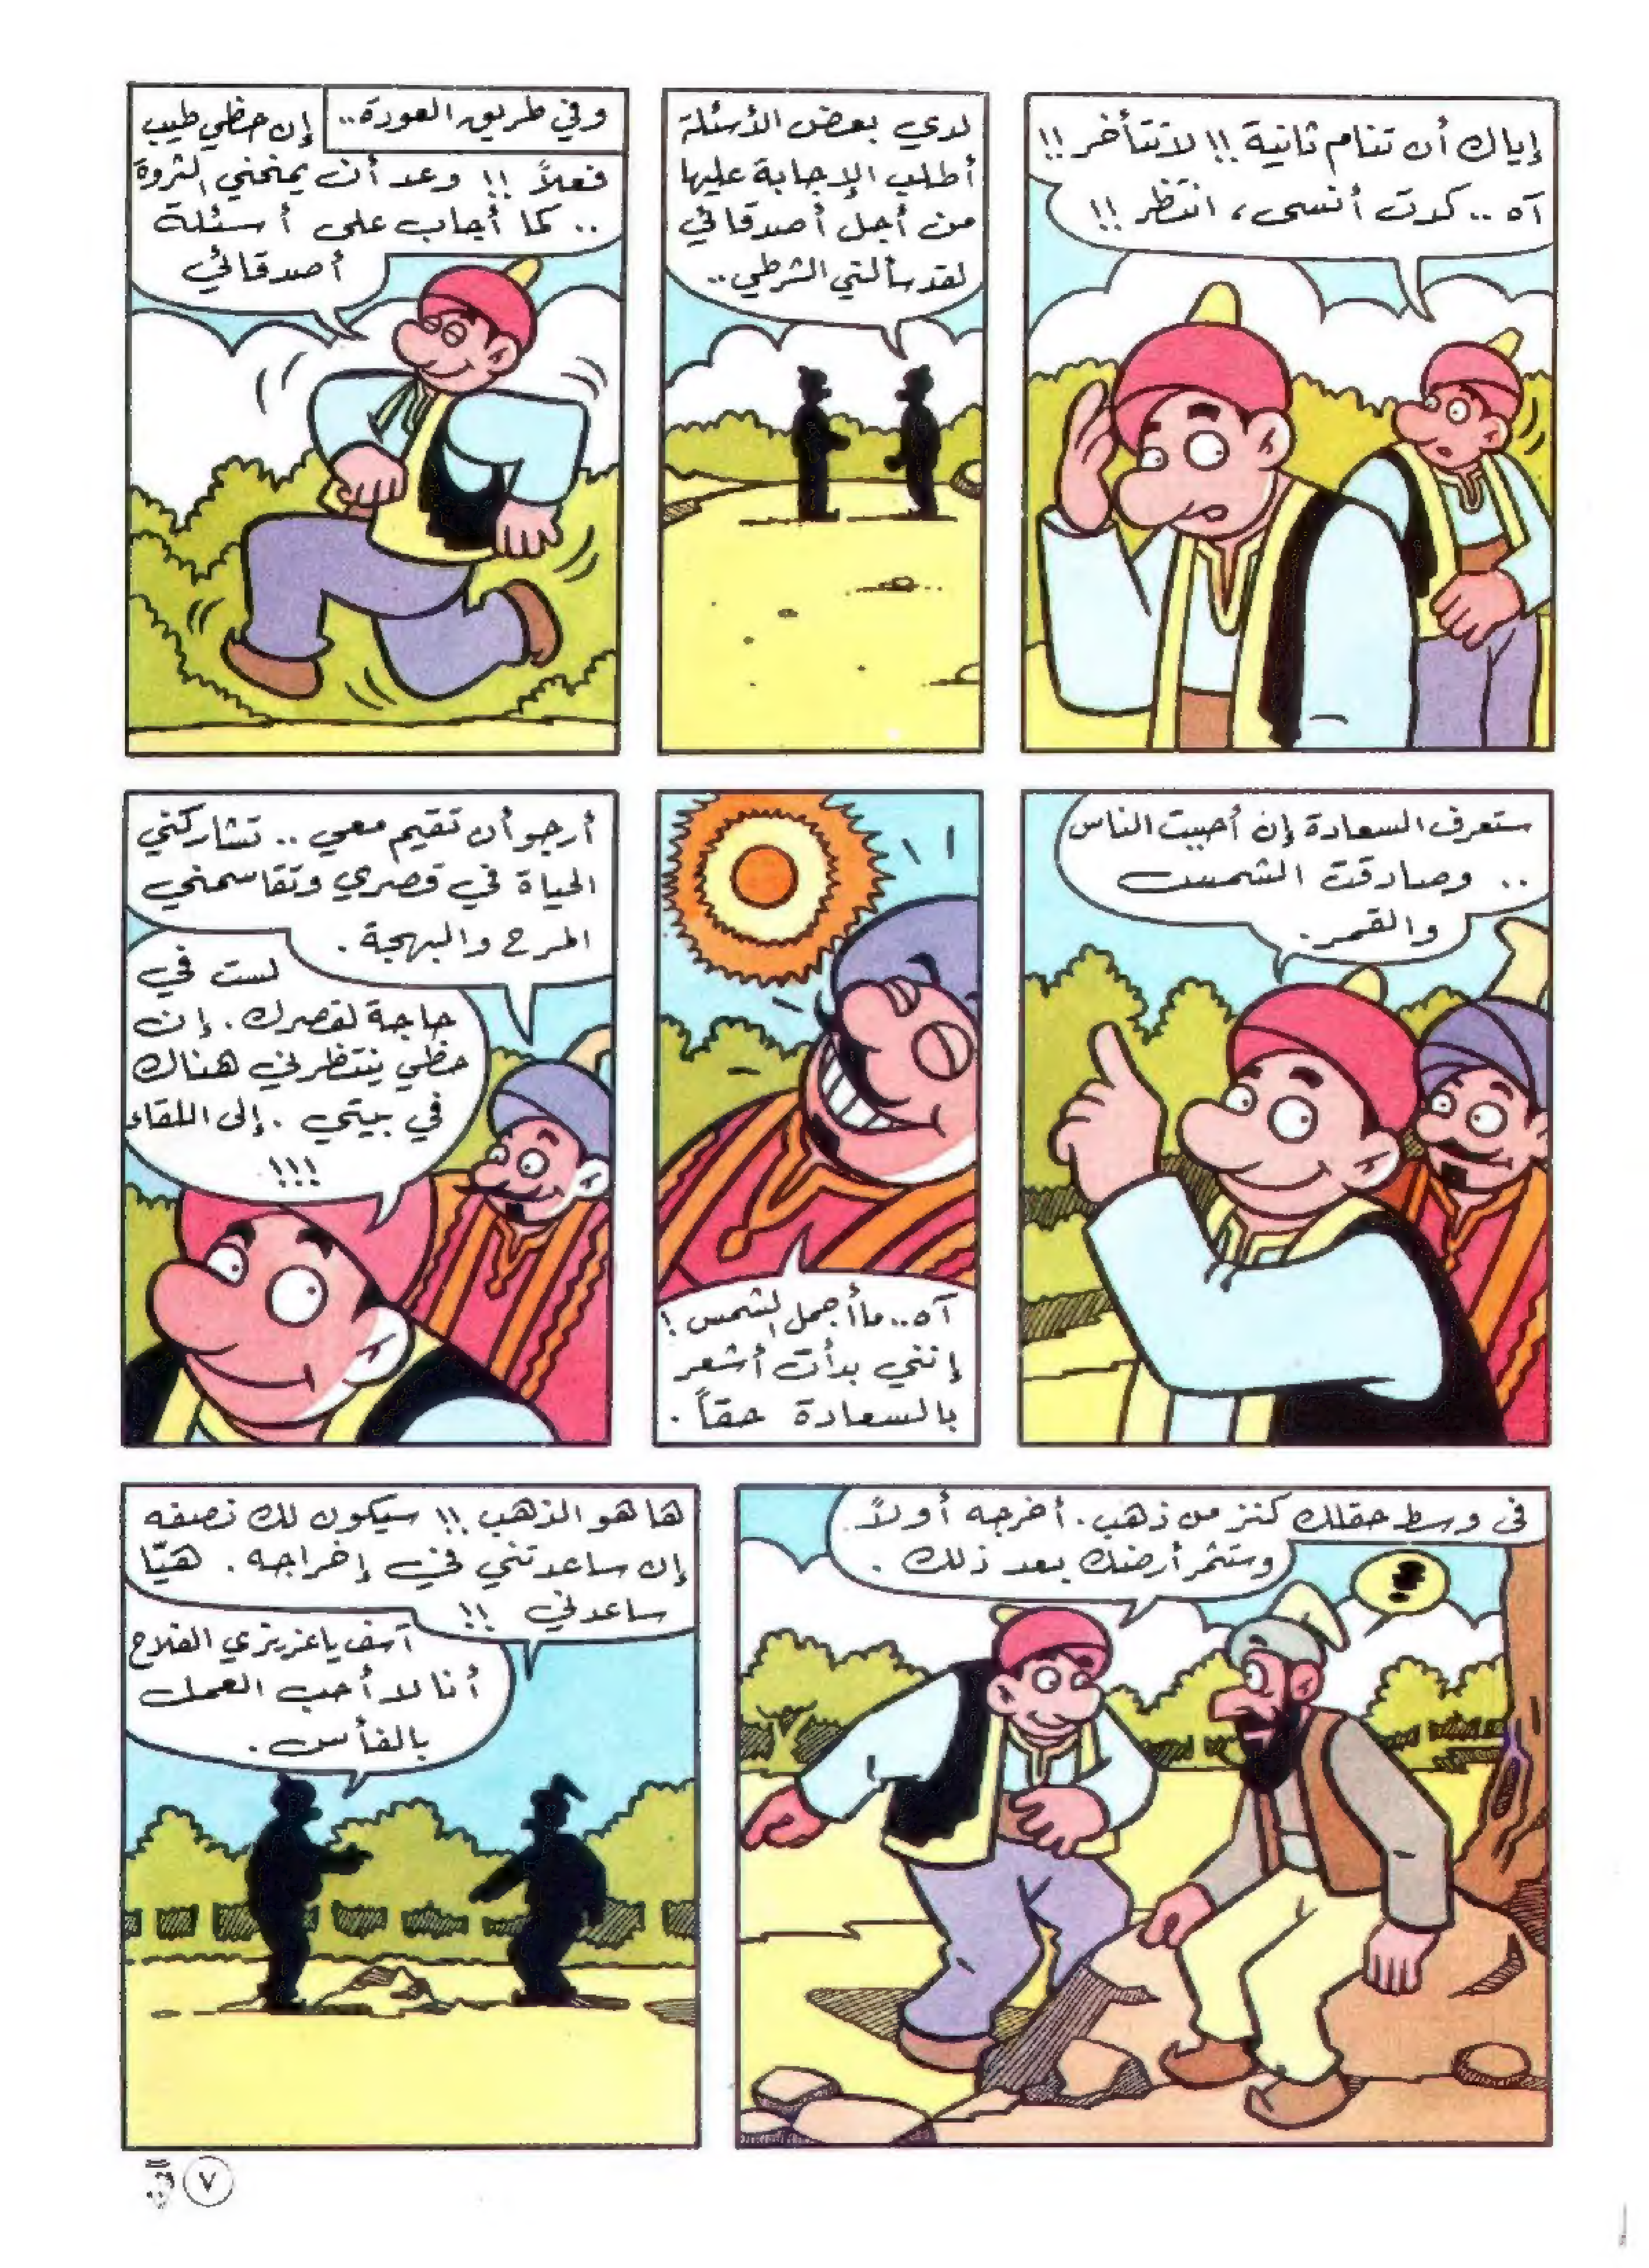 إياك أن تنام ثانية !! لا تتأخر !!
آه .. كدت أنسى ، انتظر !!
لدي بعض الأسئلة
أطلب الإجابة عليها
من أجل أصدقائي
لقد سألتي الشرطي ..
وفي طريق العودة..
إن حظي طيب
فعلاً !! وعد أن يمنحني الثروة
.. كما أجاب على أسئلة
أصدقائي
ستعرف السعادة إن أحببت الناس
.. وصادقت الشمس
والقمر.
آه.. ما أجمل الشمس !
إنني بدأت أشعر
بالسعادة حقاً .
أرجو أن تقيم معي .. تشاركني
الحياة في قصري وتقاسمني
المرح والبهجة .
لست في
حاجة لقصرك . إن
حظي ينتظرني هناك
في بيتي . إلى اللقاء
!!!
في وسط حقلك كنز من ذهب . أخرجه أولاً.
وستثمر أرضك بعد ذلك .
ها هو الذهب !! سيكون لك نصفه
إن ساعدتني في إخراجه . هيّا
ساعدني !!
آسف يا عزيزي الفلاح
أنا لا أحب العمل
بالفأس .
٧